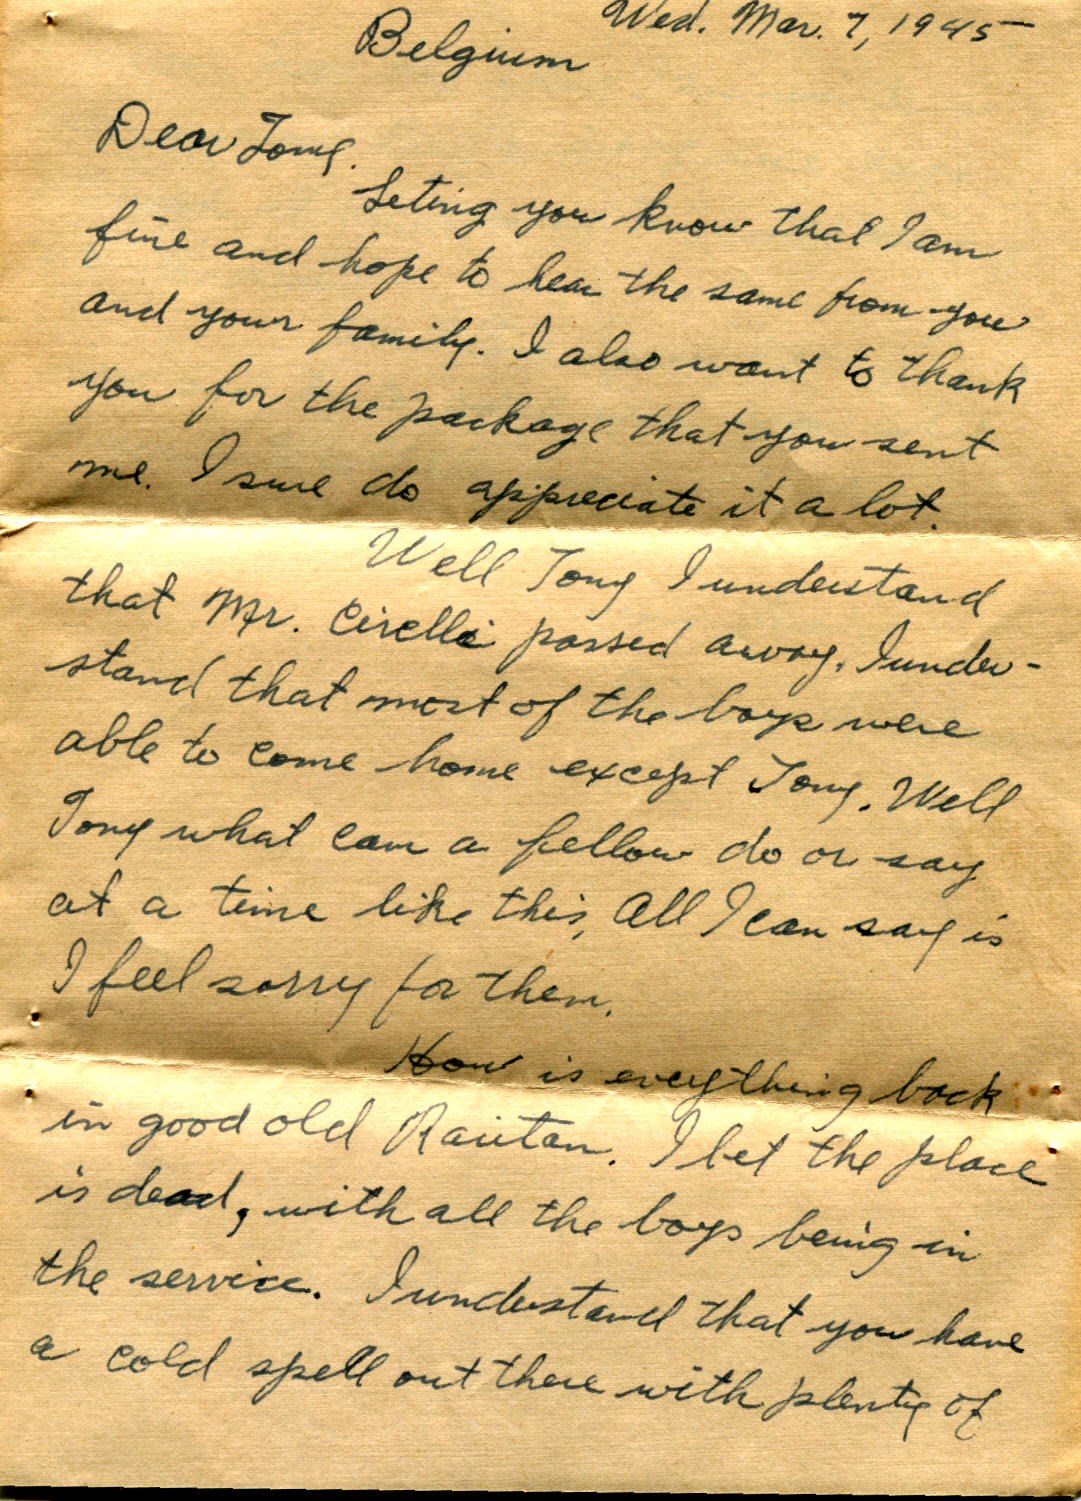 Wed. Mar. 7, 1945
Belgium
Dear Tony.
Leting you know that I am
fine and hope to hear the same from you
and your family. I also want to thank
you for the package that you sent
me. I sure do appreciate it a lot.
Well Tony I understand
that Mr. Cirelli passed away. I under-
stand that most of the boys were
able to come home except Tony. Well
Tony what can a fellow do or say
at a time like this, All I can say is
I feel sorry for them.
How is everything back
in good old Raritan. I bet the place
is dead, with all the boys being in
the service. I understand that you have
a cold spell out there with plenty of